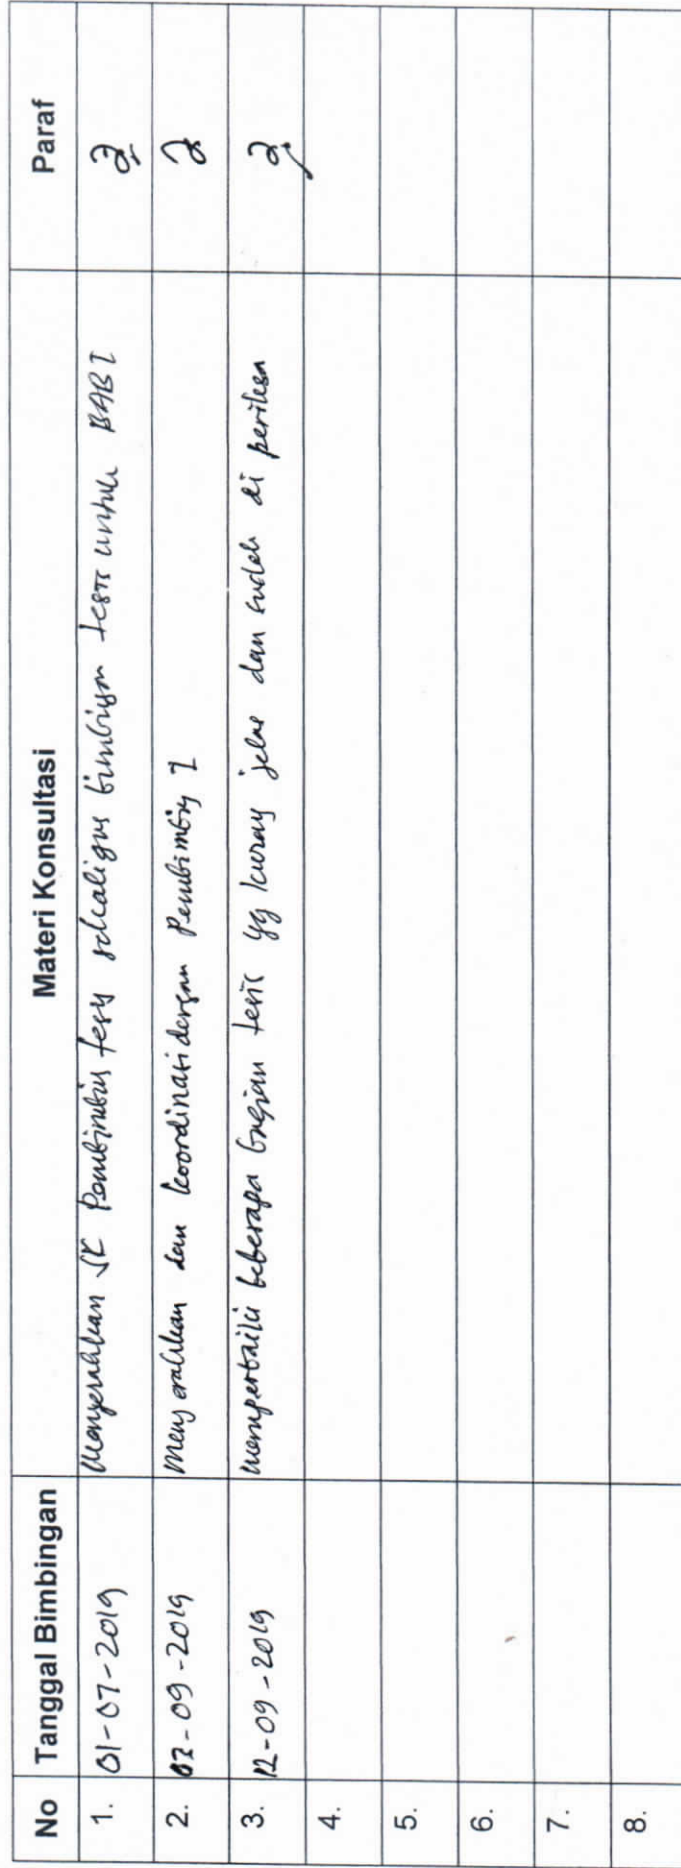 No Tanggal Bimbingan Materi Konsultasi Paraf
1. 01-07-2019 Menyerahkan SK Pembimbing tesis sekaligus bimbingan tesis untuk BAB I
2. 03-09-2019 Menyerahkan dan koordinasi dengan Pembimbing I
3. 12-09-2019 memperbaiki beberapa bagian tesis yg kurang jelas dan sudah di
4.
5.
6.
7.
8.